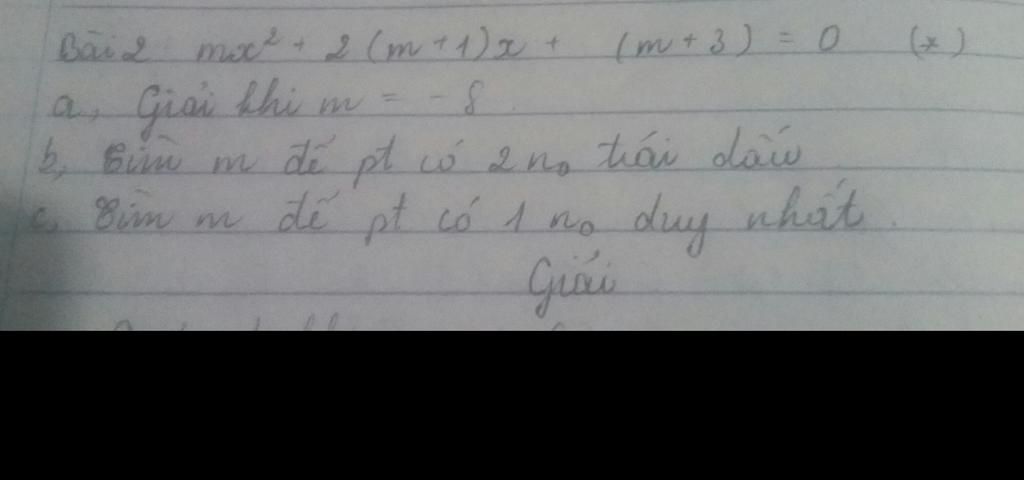 Bài 2 mx² + 2(m+1)x + (m+3) = 0 (*)
a, Giải khi m = -8
b, Tìm m để pt có 2 n₀ trái dấu
c, Tìm m để pt có 1 n₀ duy nhất.
Giải